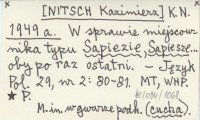 [NITSCH Kazimierz] K.N.
1949 a. W sprawie miejscow
nika typu Sapiezie, Sapiesze...
oby po raz ostatni. – Język
Pol. 29, nr 2: 80-81. MT, WHP.
* P.
M.in. w gwarze podh. (cucha).